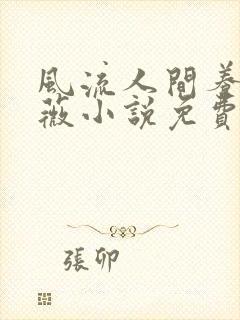 風流人間養
薇小說免費
張卯